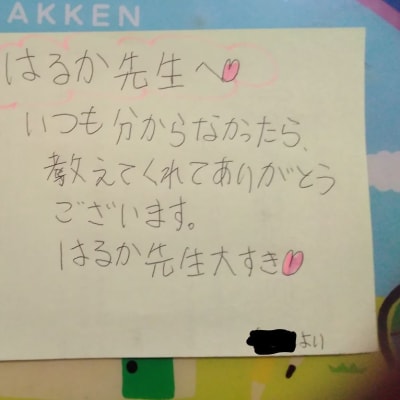 AKKEN
はるか先生へ
いつも分からなかったら、
教えてくれてありがとう
ございます。
はるか先生大すき
より